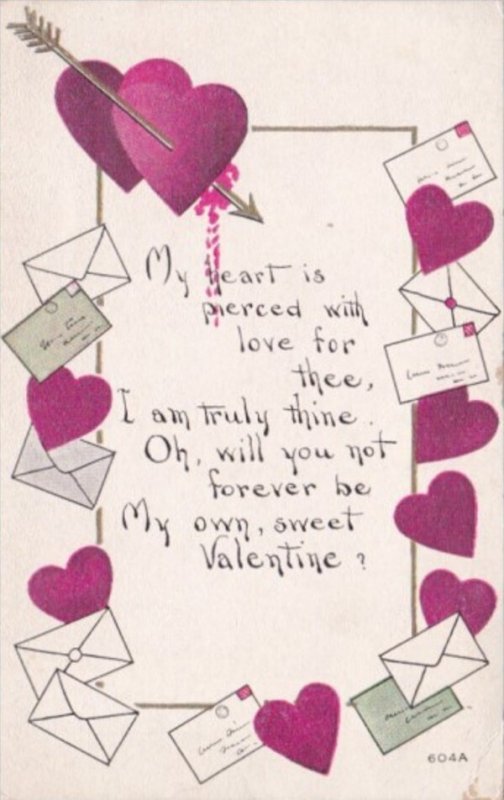 My heart is
pierced with
love for
thee,
I am truly thine.
Oh, will you not
forever be
My own, sweet
Valentine?
604A